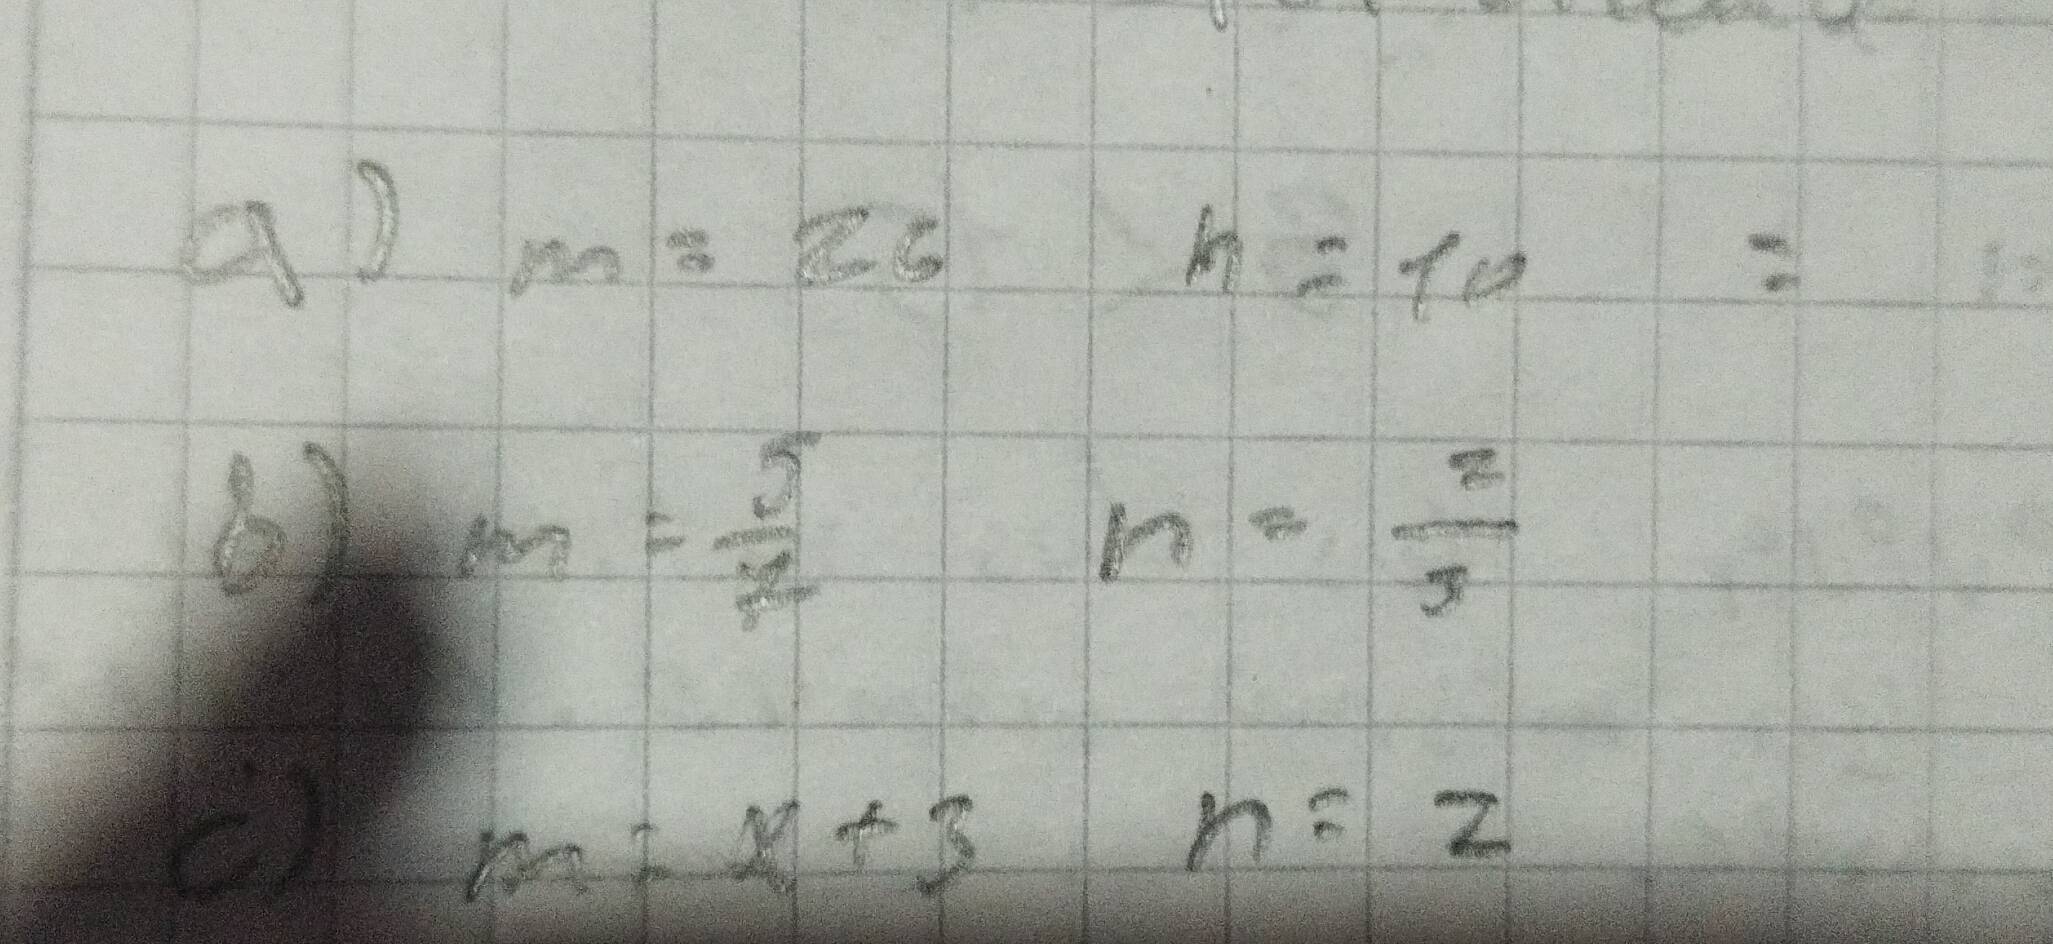 a) m = 26 n = 10 =
b) m = 5/2 n = 2/3
c) m = x + 3 n = 2